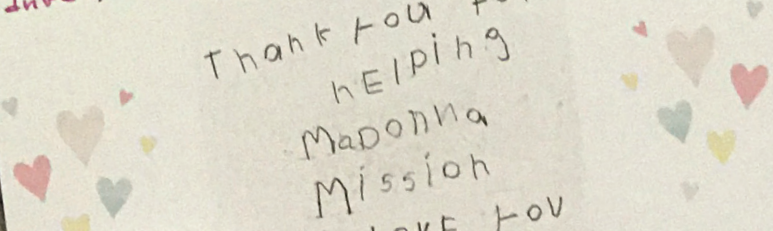 Thank You
hElping
MaDonna
Mission
You